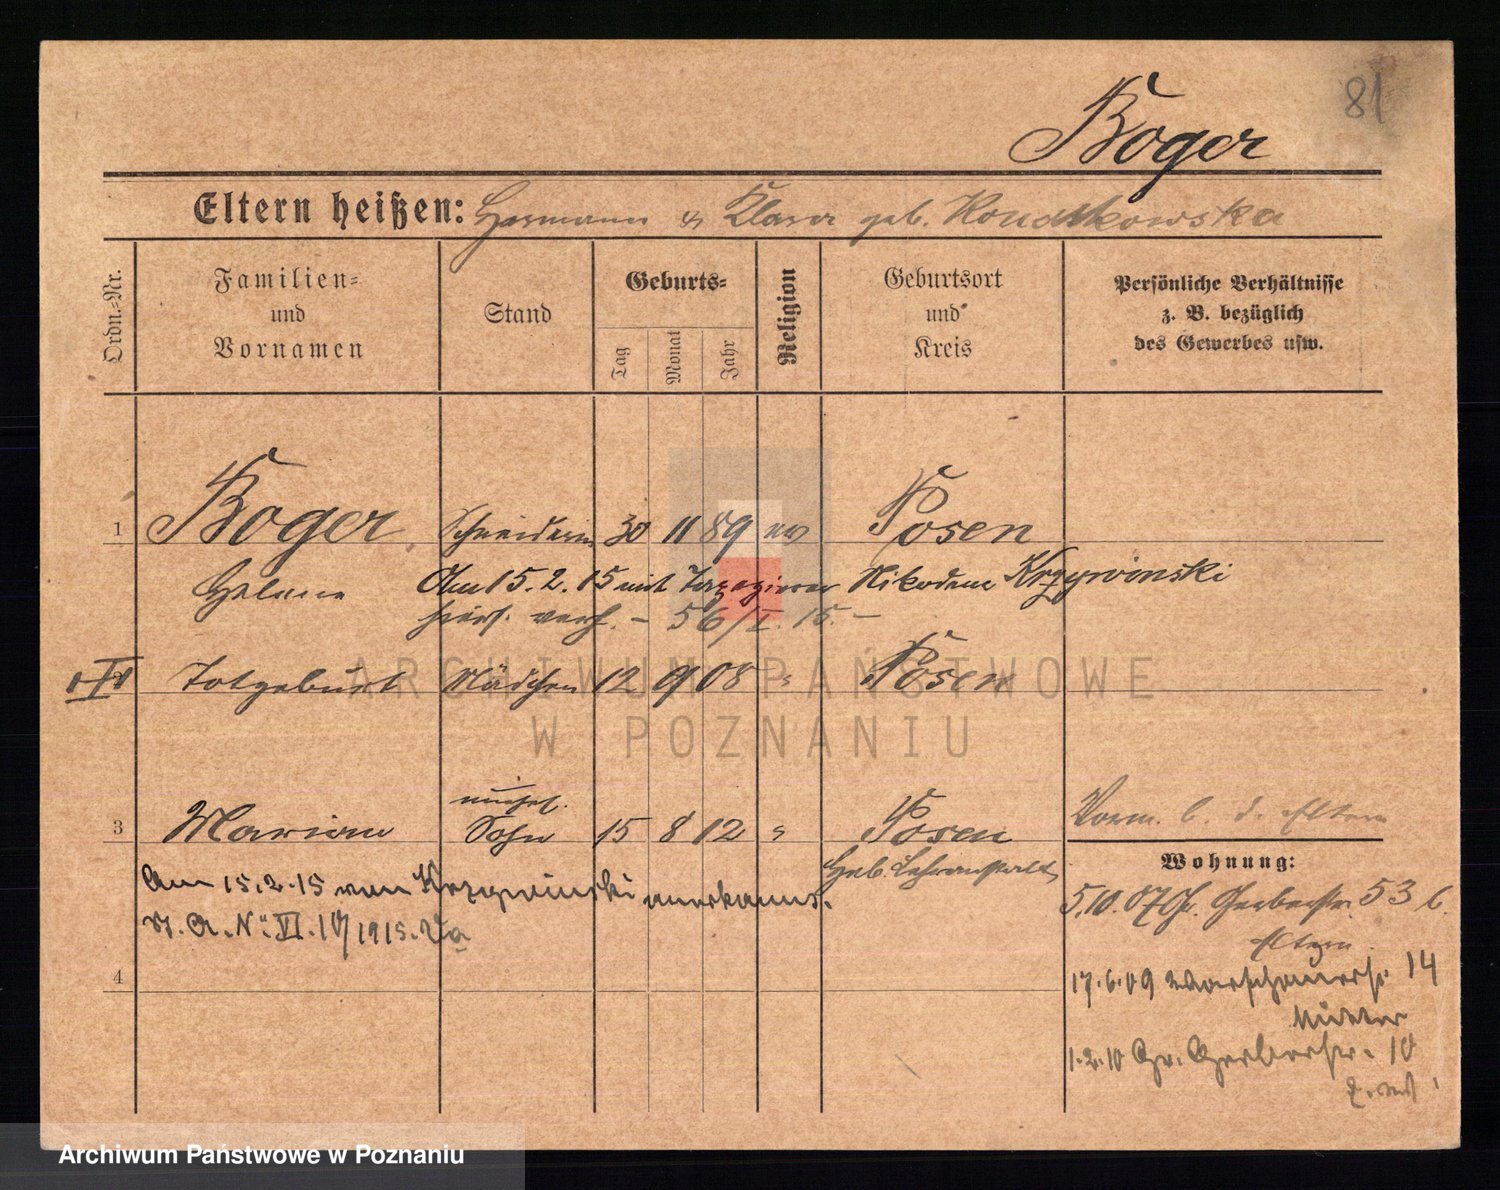 81
Boger
Eltern heißen: Hermann & Klara geb. Konatkowska
Ordn.-Nr.
Familien-
und
Vornamen
Stand
Geburts-
Tag
Monat
Jahr
Religion
Geburtsort
und
Kreis
Persönliche Verhältnisse
z. B. bezüglich
des Gewerbes usw.
1 Boger Schneiderin 30 11 89 ev Posen
Helene Am 15.2.15 mit Nikodem Krzywinski
hier verh. – 56/I. 15. –
Totgeburt Mädchen 12 9 08 " Posen
unehel.
3 Marian Sohn 15 8 12 " Posen
Heb. Lehranstalt
Am 15.2.15 von Krzywinski anerkannt.
St. A. No VI. 10/1915.
4
Vorm. b. d. Eltern
Wohnung:
5.10.07 Gr. Gerberstr. 53 b.
Eltern
17.6.09 Warschauerstr. 14
Mutter
1.2.10 Gr. Gerberstr. 10
ARCHIWUM PAŃSTWOWE
W POZNANIU
Archiwum Państwowe w Poznaniu